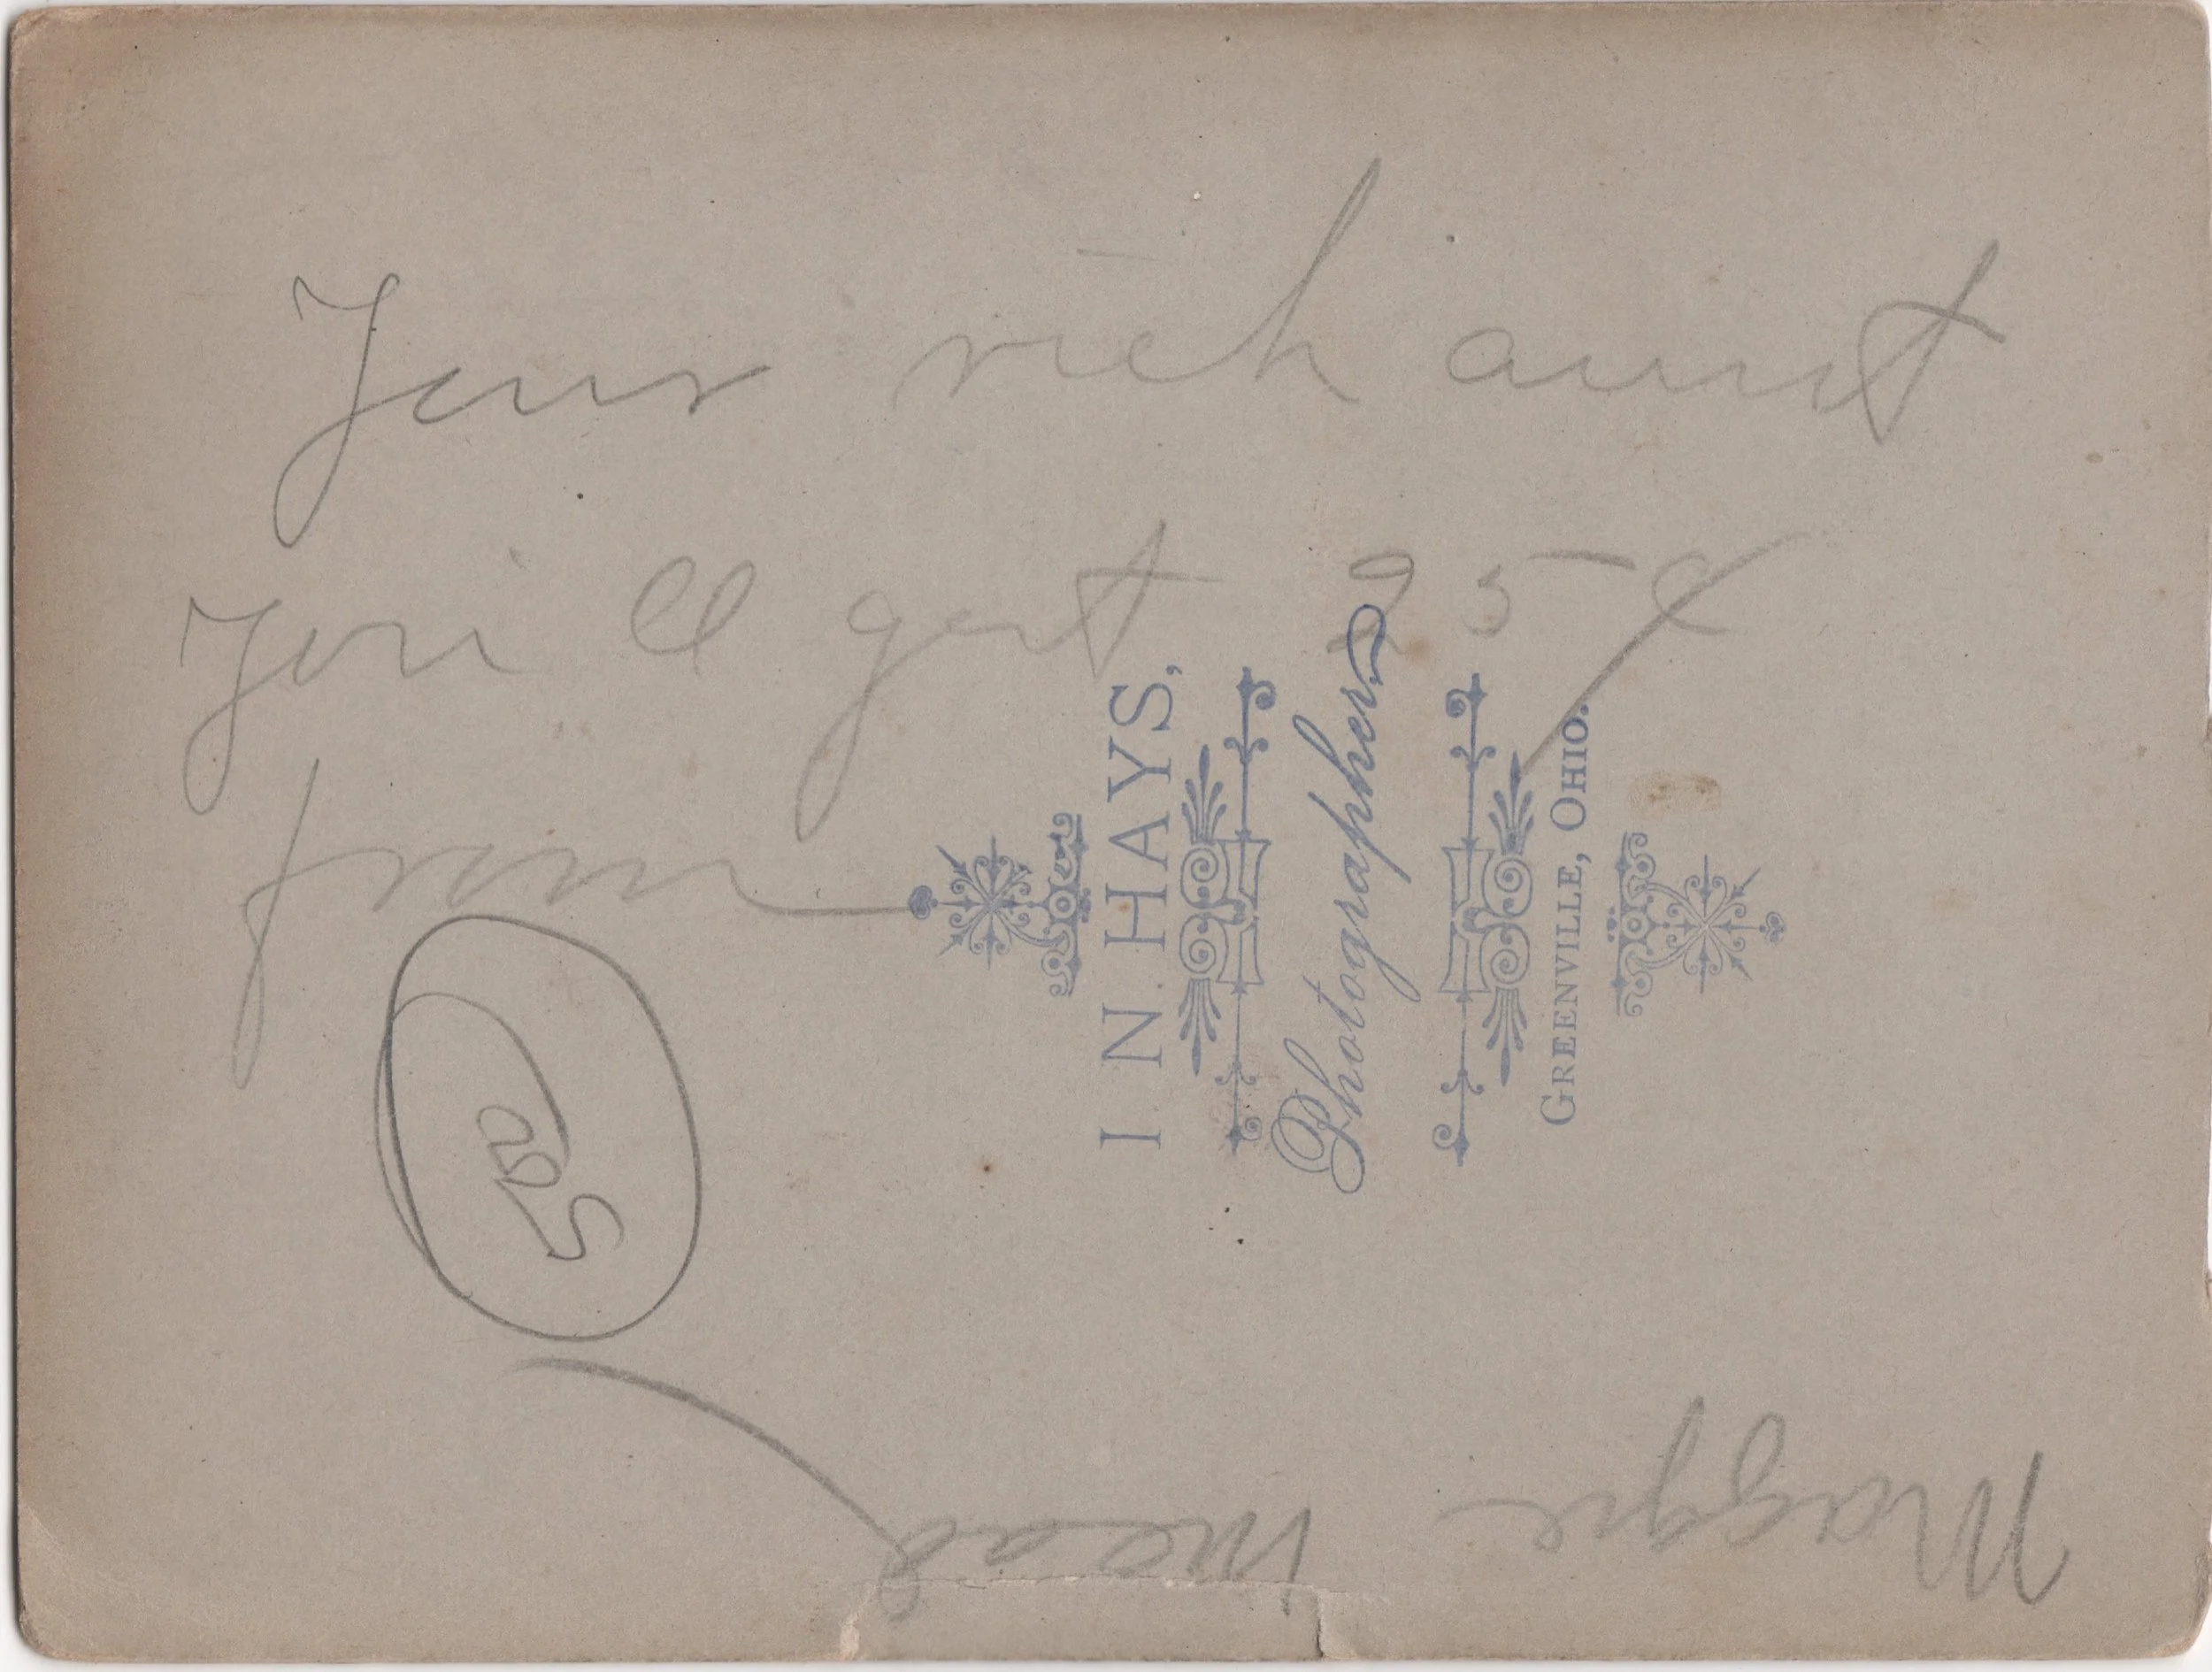 Your rich aunt
You'll get 25¢
from
I. N. HAYS,
Photographer
GREENVILLE, OHIO.
Maggie Mead